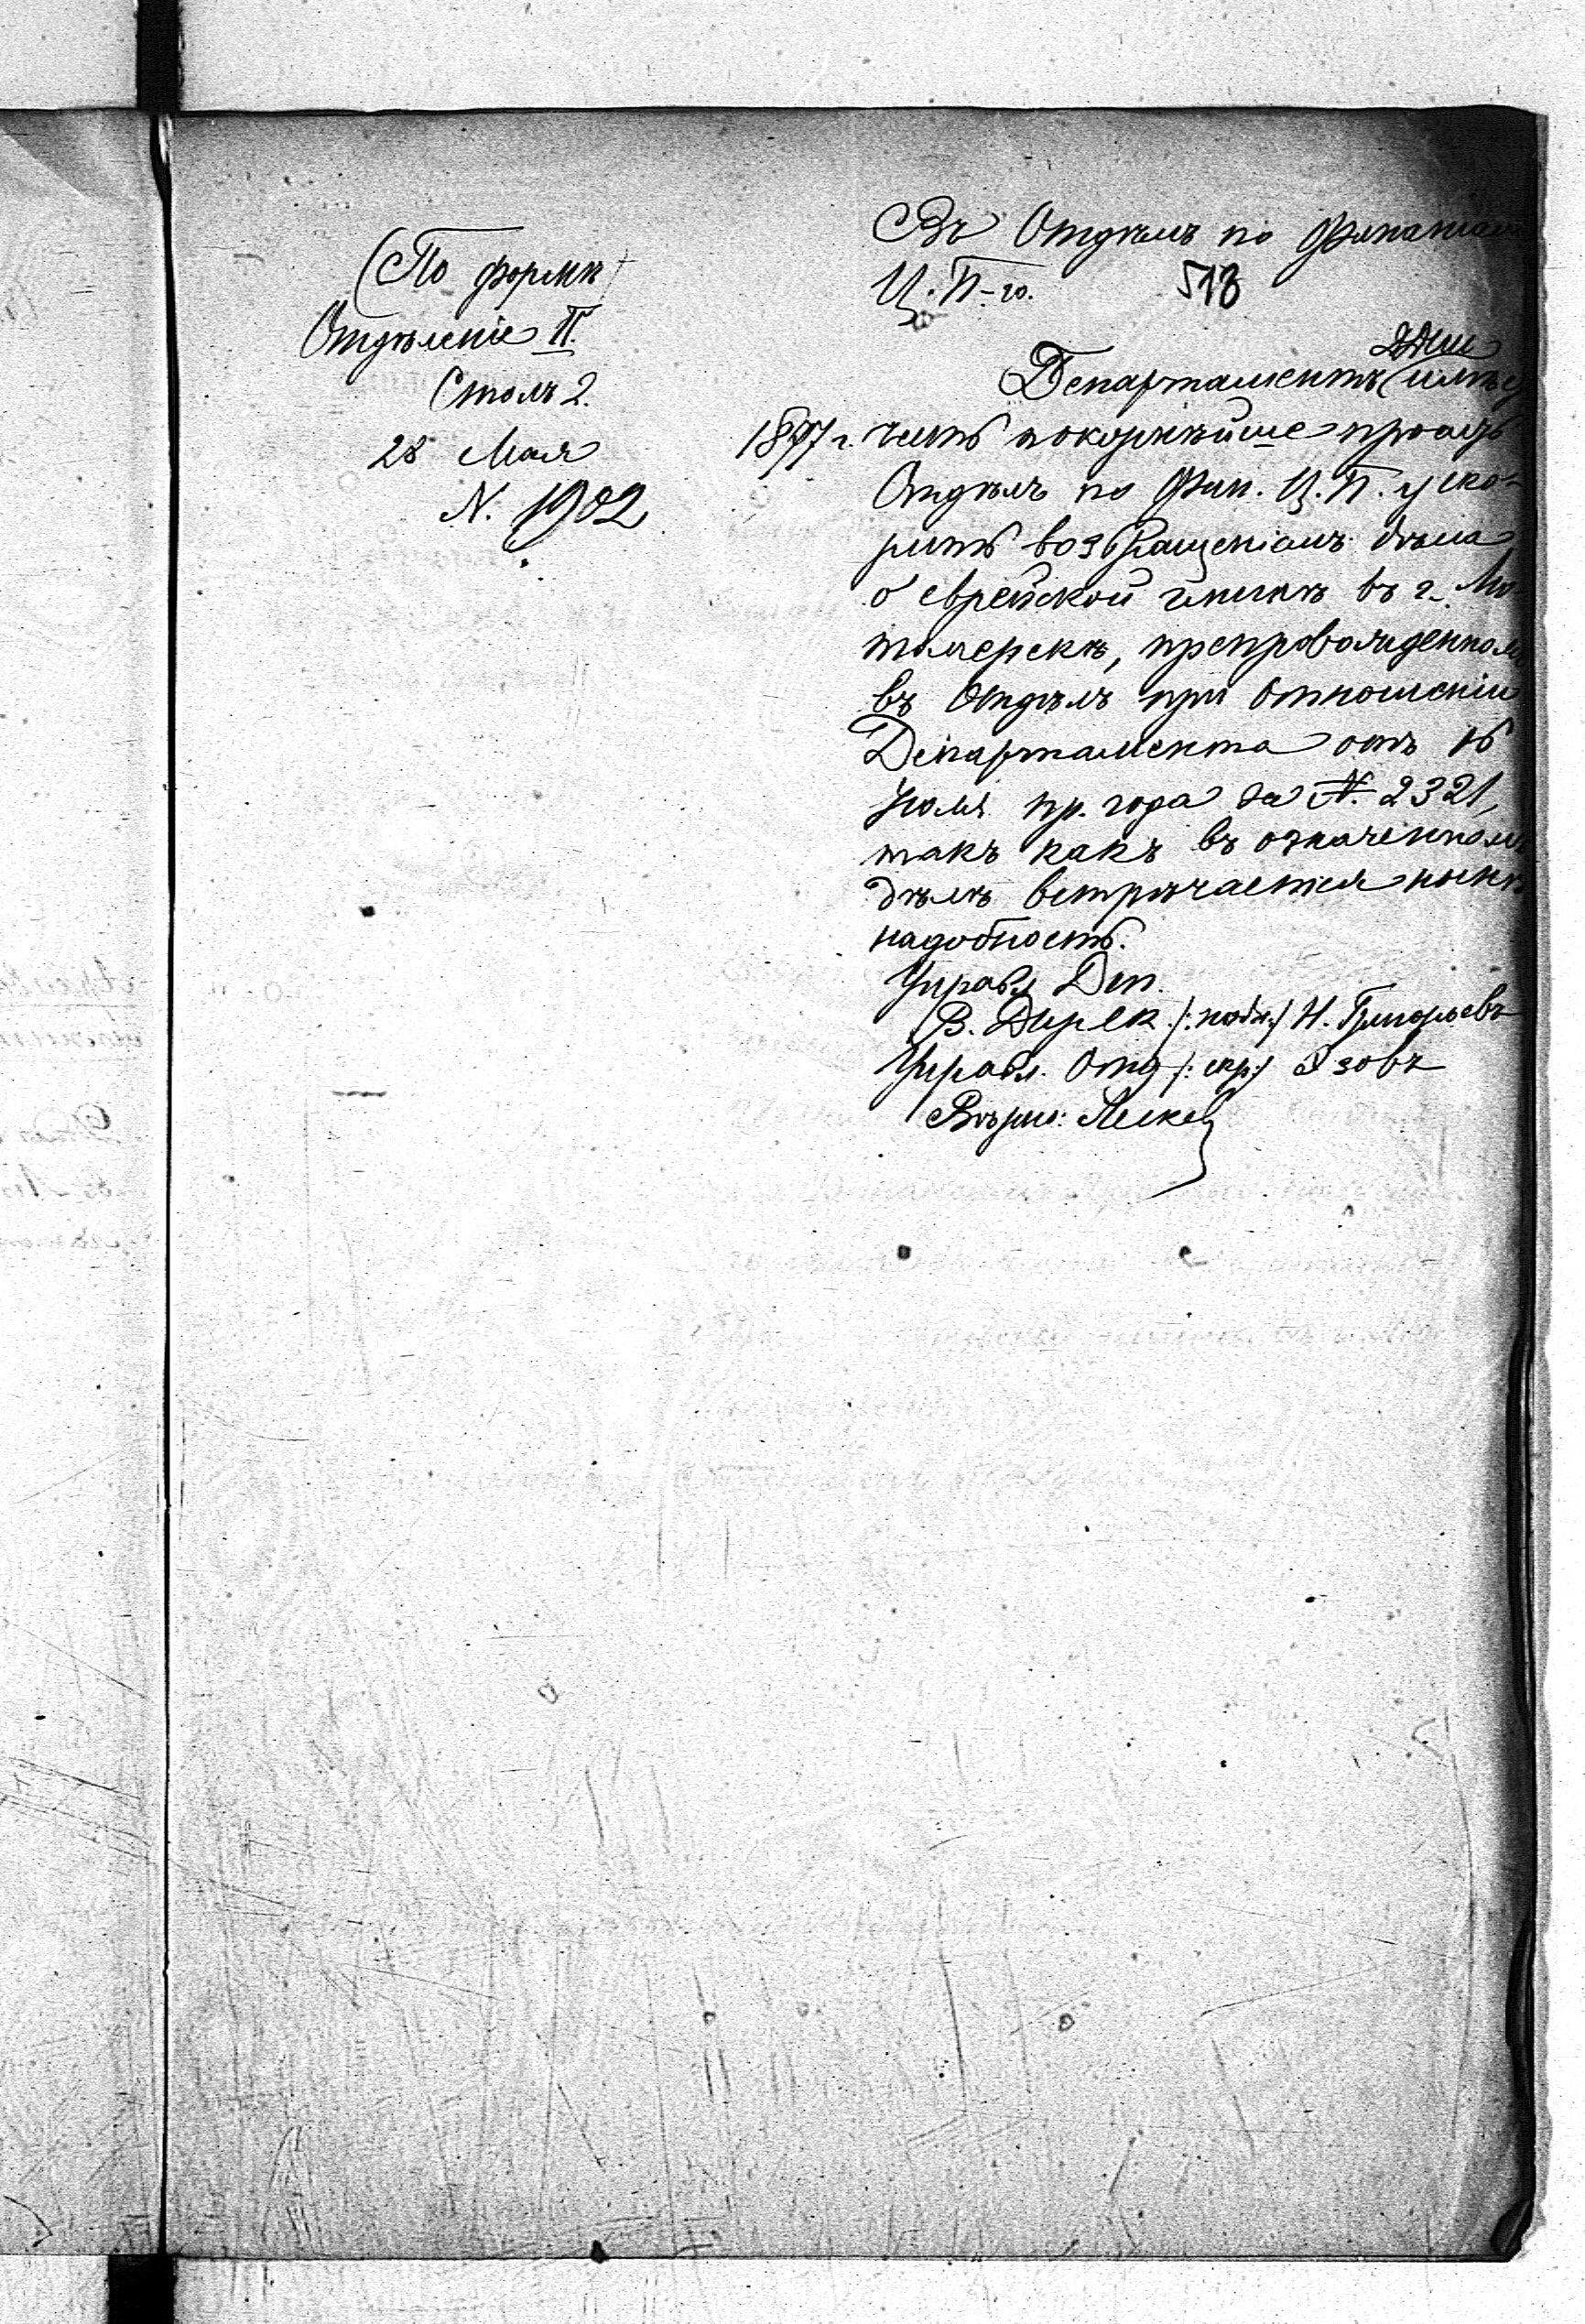 (По формѣ)
Отдѣленіе II.
Столъ 2.
28 Мая 1897 г.
N. 1902
Въ Отдѣлъ по Финансамъ
Ц. П-го.
518
Департаментъ имѣетъ
честь покорнѣйше просить
Отдѣлъ по Фин. Ц. П. уско-
рить возвращеніемъ дѣла
о еврейской въ г.
препровожденномъ
въ Отдѣлъ при отношеніи
Департамента отъ 16
Іюля пр. года за N. 2321,
такъ какъ въ означенномъ
дѣлѣ встрѣчается нынѣ
надобность.
Управл. Деп.
В. Дирек. /: подп. :/ Н. Григорьевъ
Управл. Отд. /: скр. :/ Азовъ
Вѣрно: